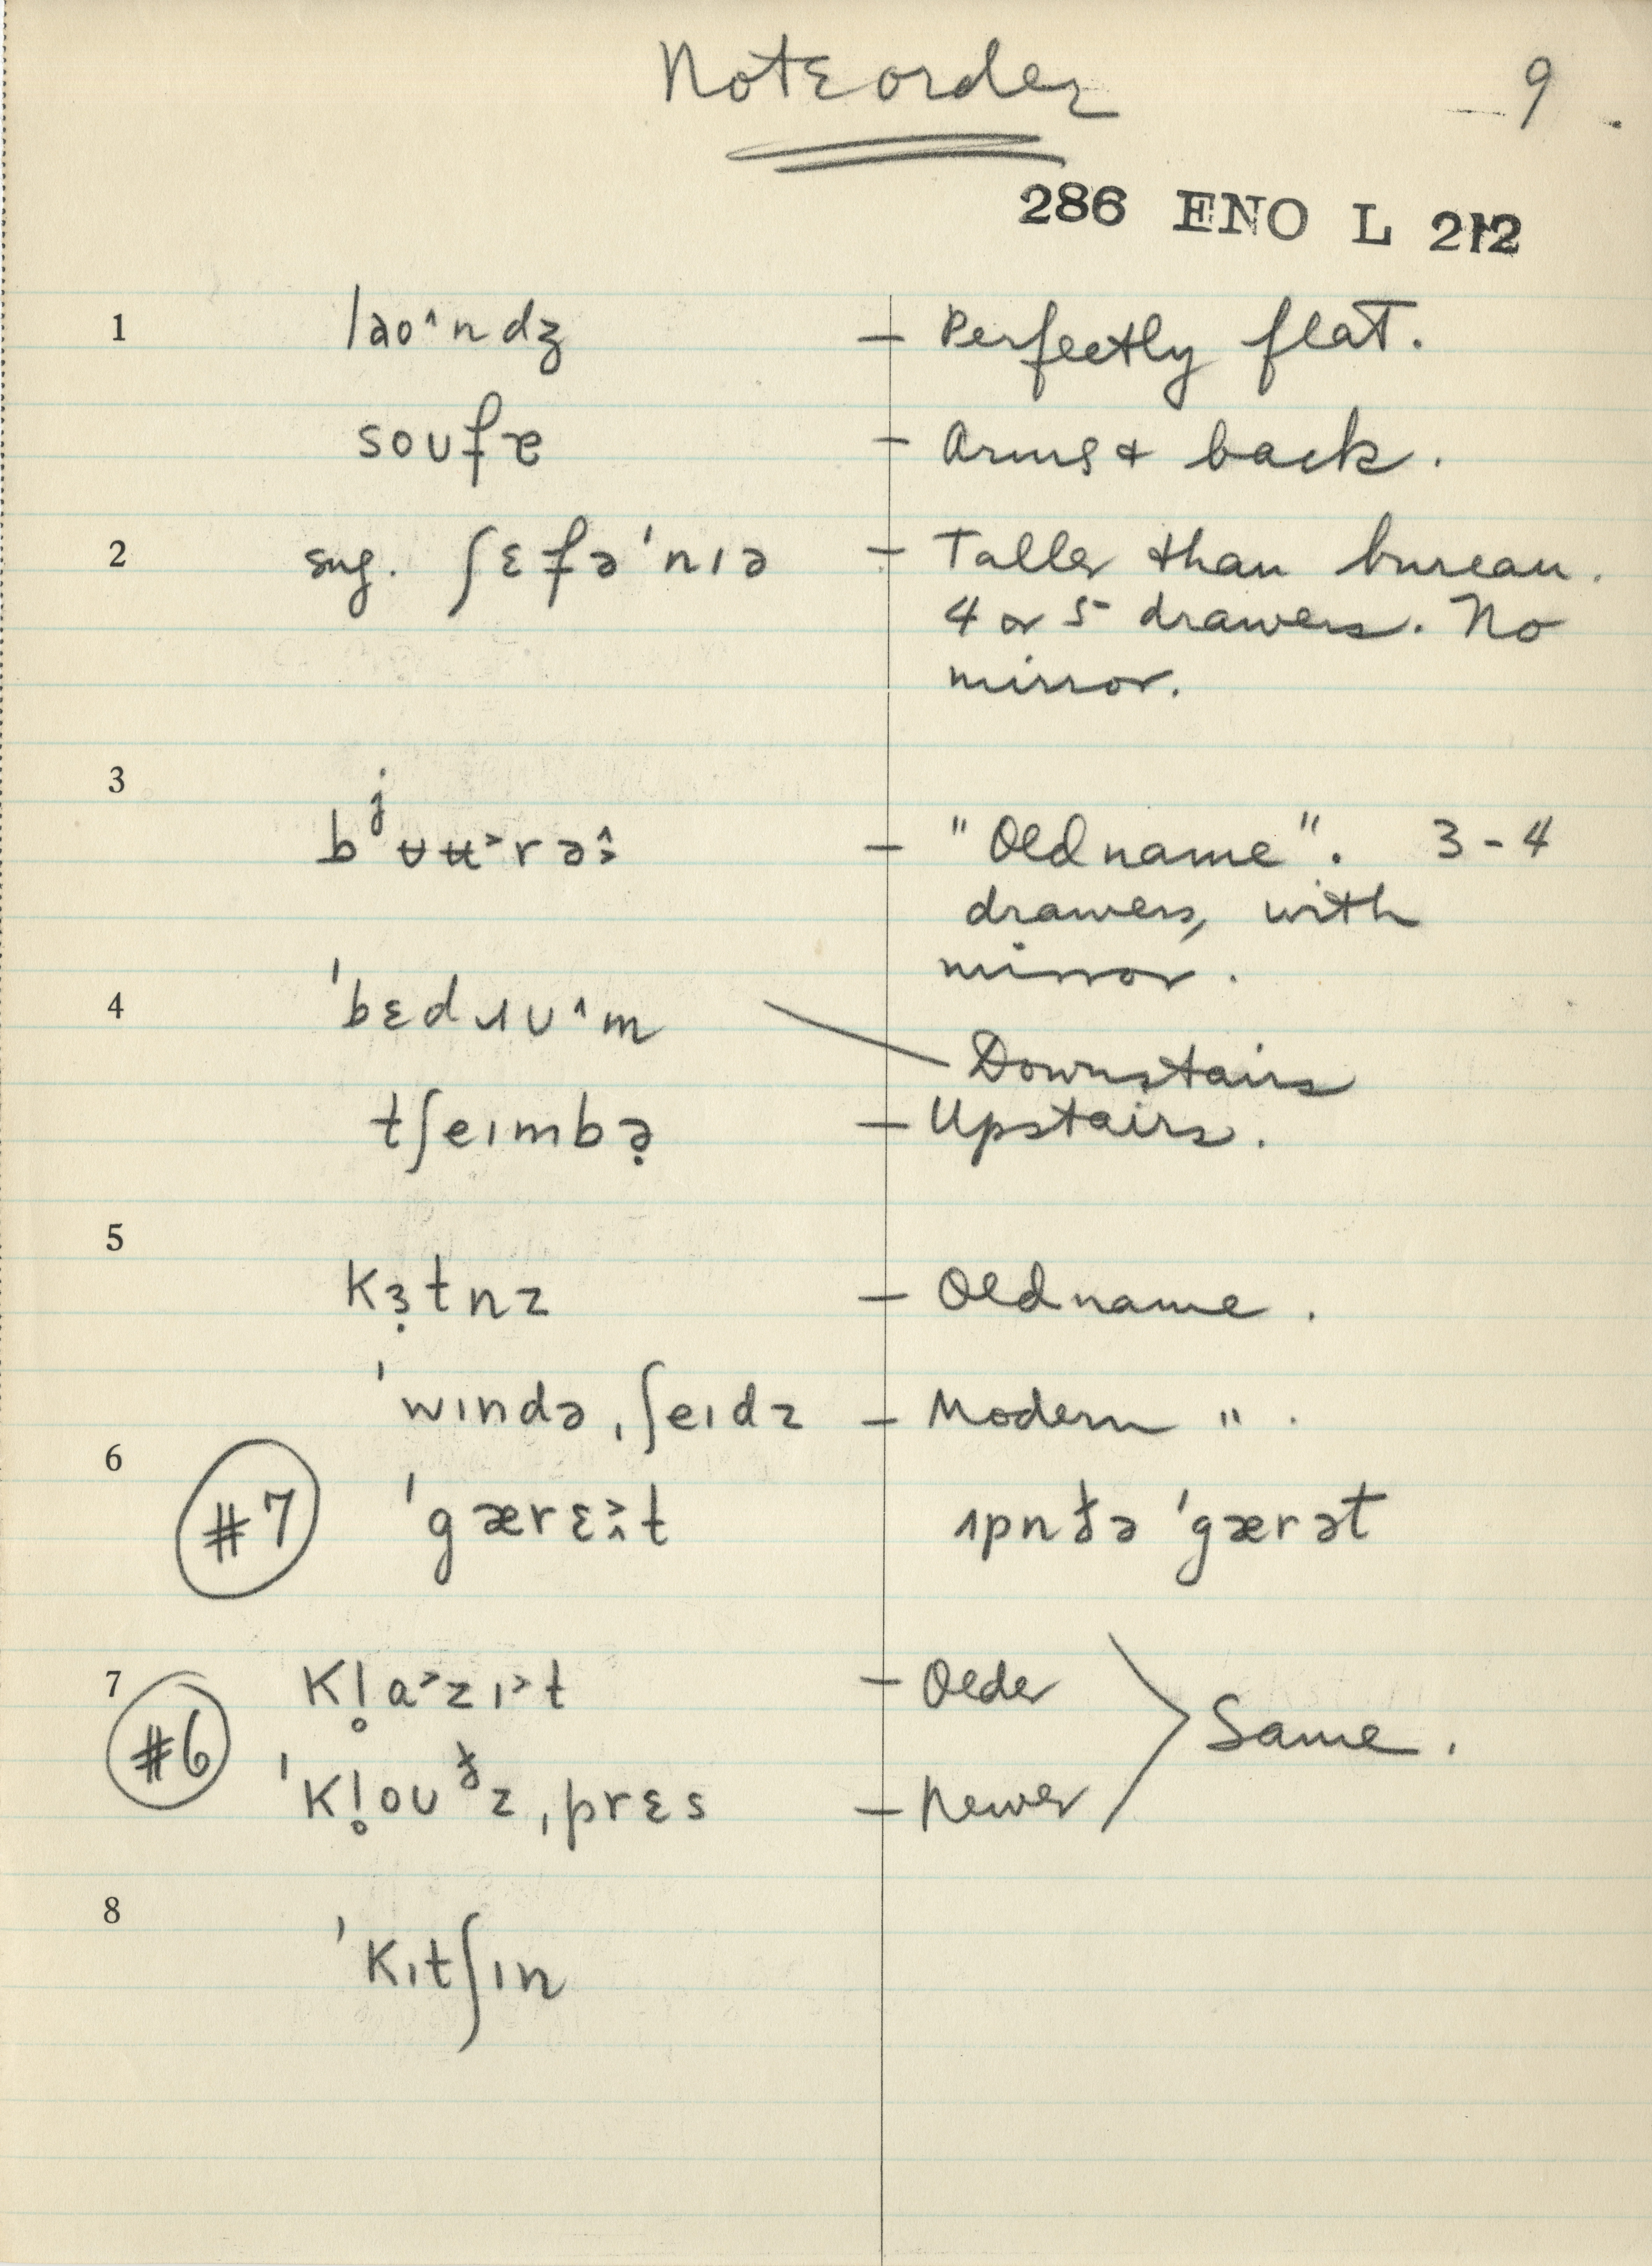 Note order
9
286 ENO L 212
1 laoˆndʒ – Perfectly flat.
soʊfɐ – Arms & back.
2 sug. ʃɛfəˈnɪə – Taller than bureau.
4 or 5 drawers. No
mirror.
3 – "Old name". 3-4
drawers, with
mirror.
4 ˈbɛdɹʊˆm – Downstairs
tʃeɪmbə̣ – Upstairs.
5 kɜ̣tnz – Old name.
ˈwɪndəˌʃeɪdz – Modern " .
6 #7 ˈgærɛt
7 #6 kl̥a˃zɪ˃t – Older
Same.
ˈkl̥oʊᵟzˌprɛs – Newer
8 ˈkɪtʃɪn